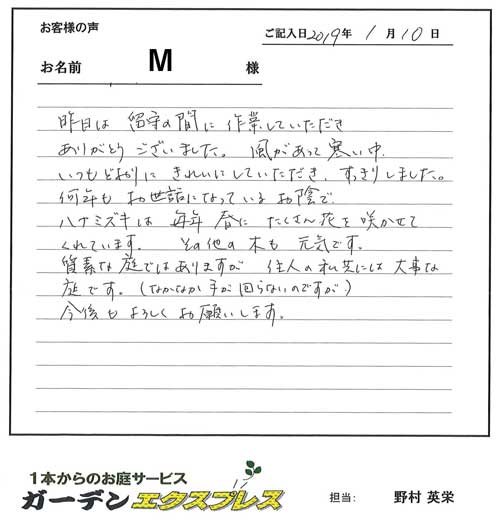 お客様の声
ご記入日2019年 1月10日
お名前 M 様
昨日は 留守の間に 作業していただき
ありがとう ございました。 風があって 寒い中、
いつもどおりに きれいにしていただき、すっきりしました。
何年も お世話になっている お陰で、
ハナミズキは 毎年 春に たくさん花を 咲かせて
くれています。 その他の木も 元気です。
質素な庭ではありますが 住人の私共には 大事な
庭です。(なかなか手が回らないのですが)
今後も よろしく お願いします。
1本からのお庭サービス
ガーデンエクスプレス
担当: 野村 英栄